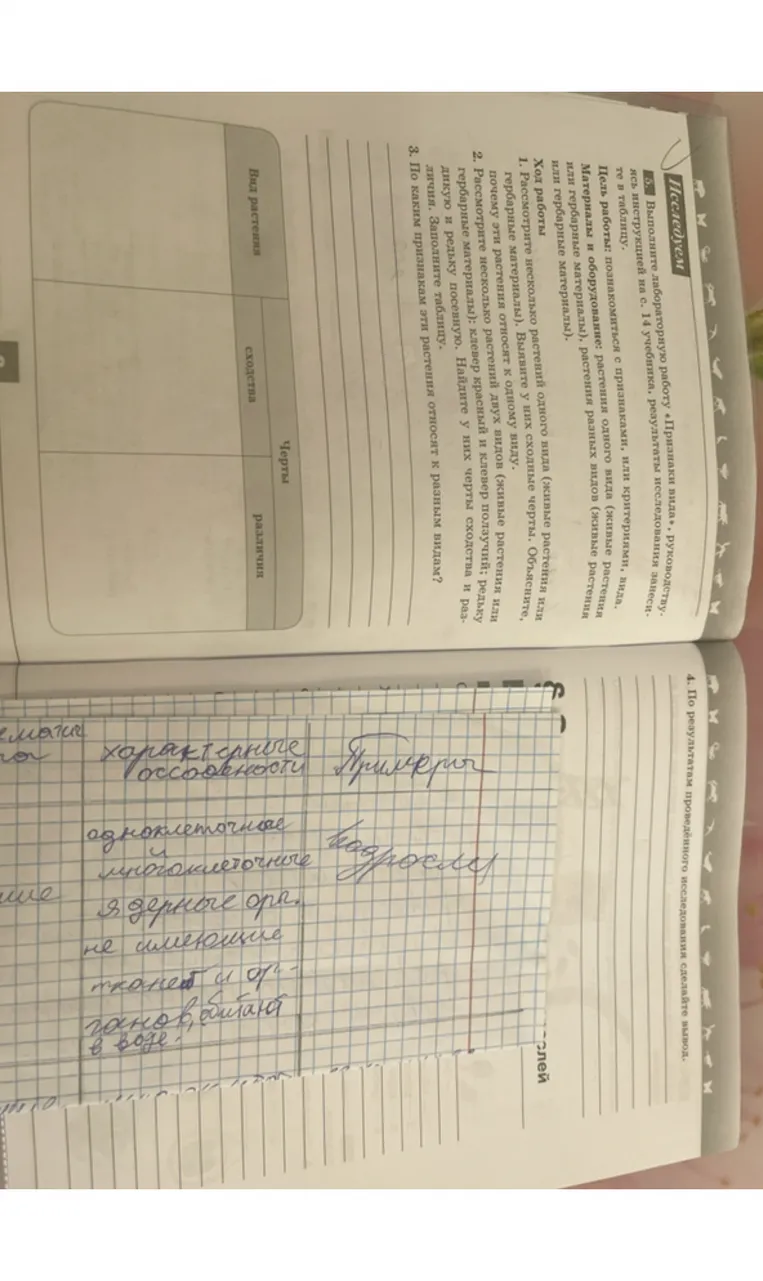 Исследуем
5. Выполните лабораторную работу «Признаки вида», руководству-
ясь инструкцией на с. 14 учебника, результаты исследования занеси-
те в таблицу.
Цель работы: познакомиться с признаками, или критериями, вида.
Материалы и оборудование: растения одного вида (живые растения
или гербарные материалы), растения разных видов (живые растения
или гербарные материалы).
Ход работы
1. Рассмотрите несколько растений одного вида (живые растения или
гербарные материалы). Выявите у них сходные черты. Объясните,
почему эти растения относят к одному виду.
2. Рассмотрите несколько растений двух видов (живые растения или
гербарные материалы): клевер красный и клевер ползучий; редьку
дикую и редьку посевную. Найдите у них черты сходства и раз-
личия. Заполните таблицу.
3. По каким признакам эти растения относят к разным видам?
Черты
Вид растения сходства различия
4. По результатам проведённого исследования сделайте вывод.
характерные Примеры
оссобвности
одноклеточные водросли
и
многоклеточные
ядерные орг.
не имеющие
тканей и ор-
ганов, обитают
в воде.
слей